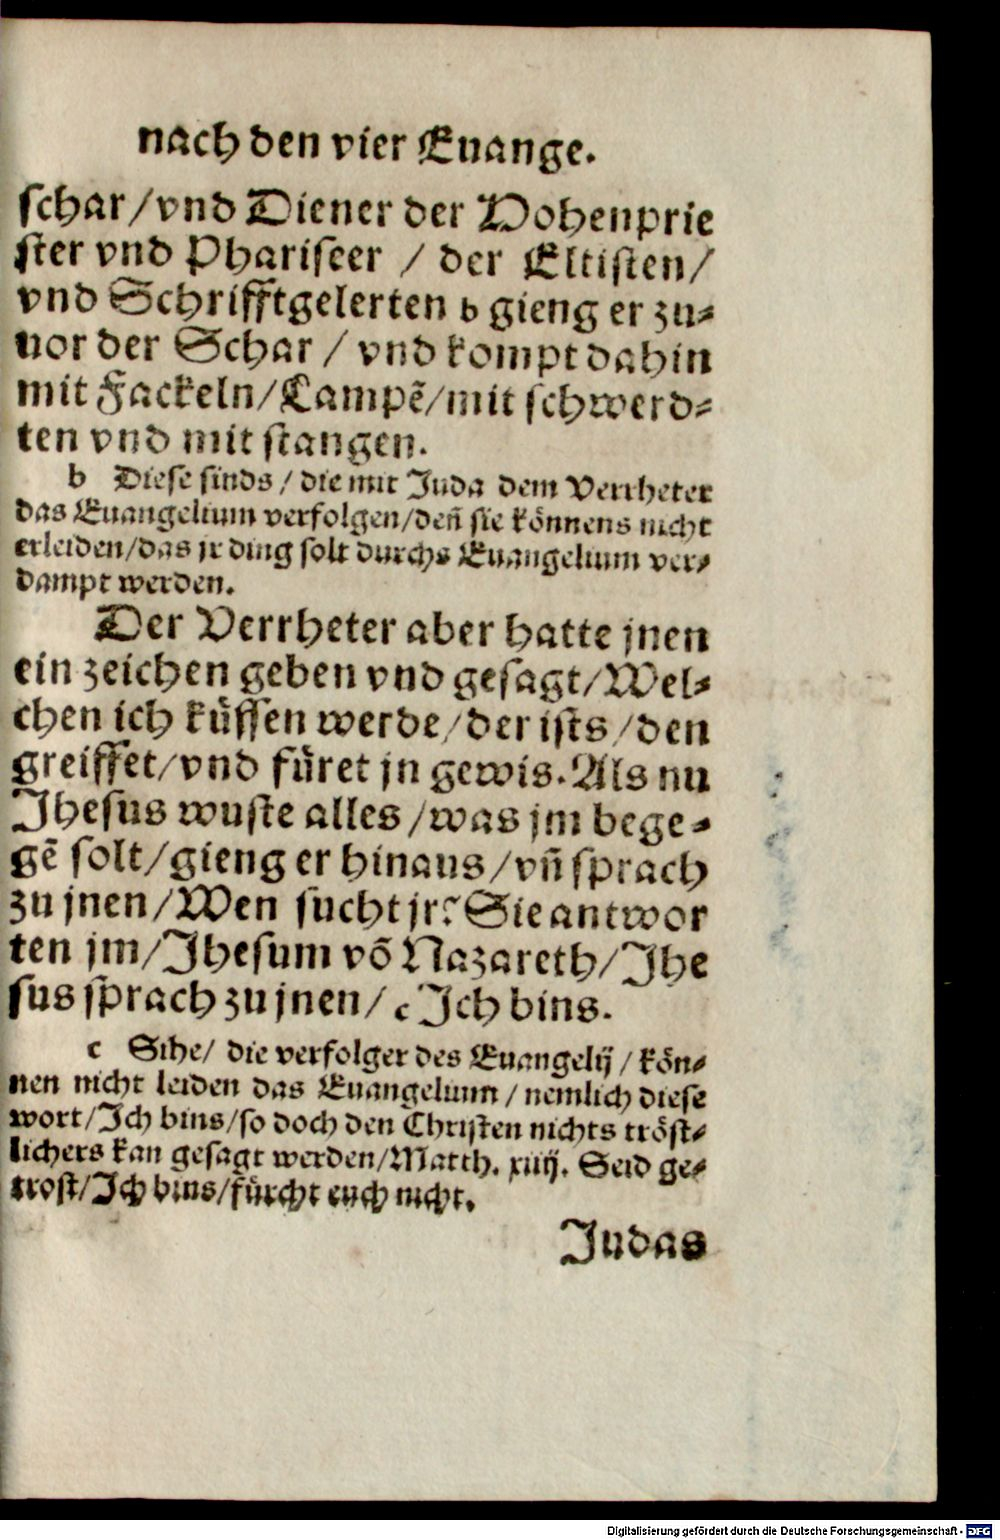 nach den vier Euange.
schar/vnd Diener der Hohenprie
ster vnd Phariseer / der Eltisten/
vnd Schrifftgelerten b gieng er zu⸗
uor der Schar / vnd kompt dahin
mit Fackeln/Lampẽ/mit schwerd⸗
ten vnd mit stangen.
b Diese sinds / die mit Juda dem Verrheter
das Euangelium verfolgen/deñ sie könnens nicht
erleiden/das jr ding solt durchs Euangelium ver⸗
dampt werden.
Der Verrheter aber hatte jnen
ein zeichen geben vnd gesagt/Wel⸗
chen ich küssen werde/der ists/den
greiffet/vnd füret jn gewis. Als nu
Jhesus wuste alles/was jm bege⸗
gẽ solt/gieng er hinaus/vñ sprach
zu jnen/Wen sucht jr? Sie antwor
ten jm/Jhesum võ Nazareth/Jhe
sus sprach zu jnen/ c Ich bins.
c Sihe/ die verfolger des Euangelij / kön⸗
nen nicht leiden das Euangelium / nemlich diese
wort/Ich bins/so doch den Christen nichts tröst⸗
lichers kan gesagt werden/Matth. xiiij. Seid ge⸗
trost/Ich bins/fürcht euch nicht.
Judas
Digitalisierung gefördert durch die Deutsche Forschungsgemeinschaft - DFG